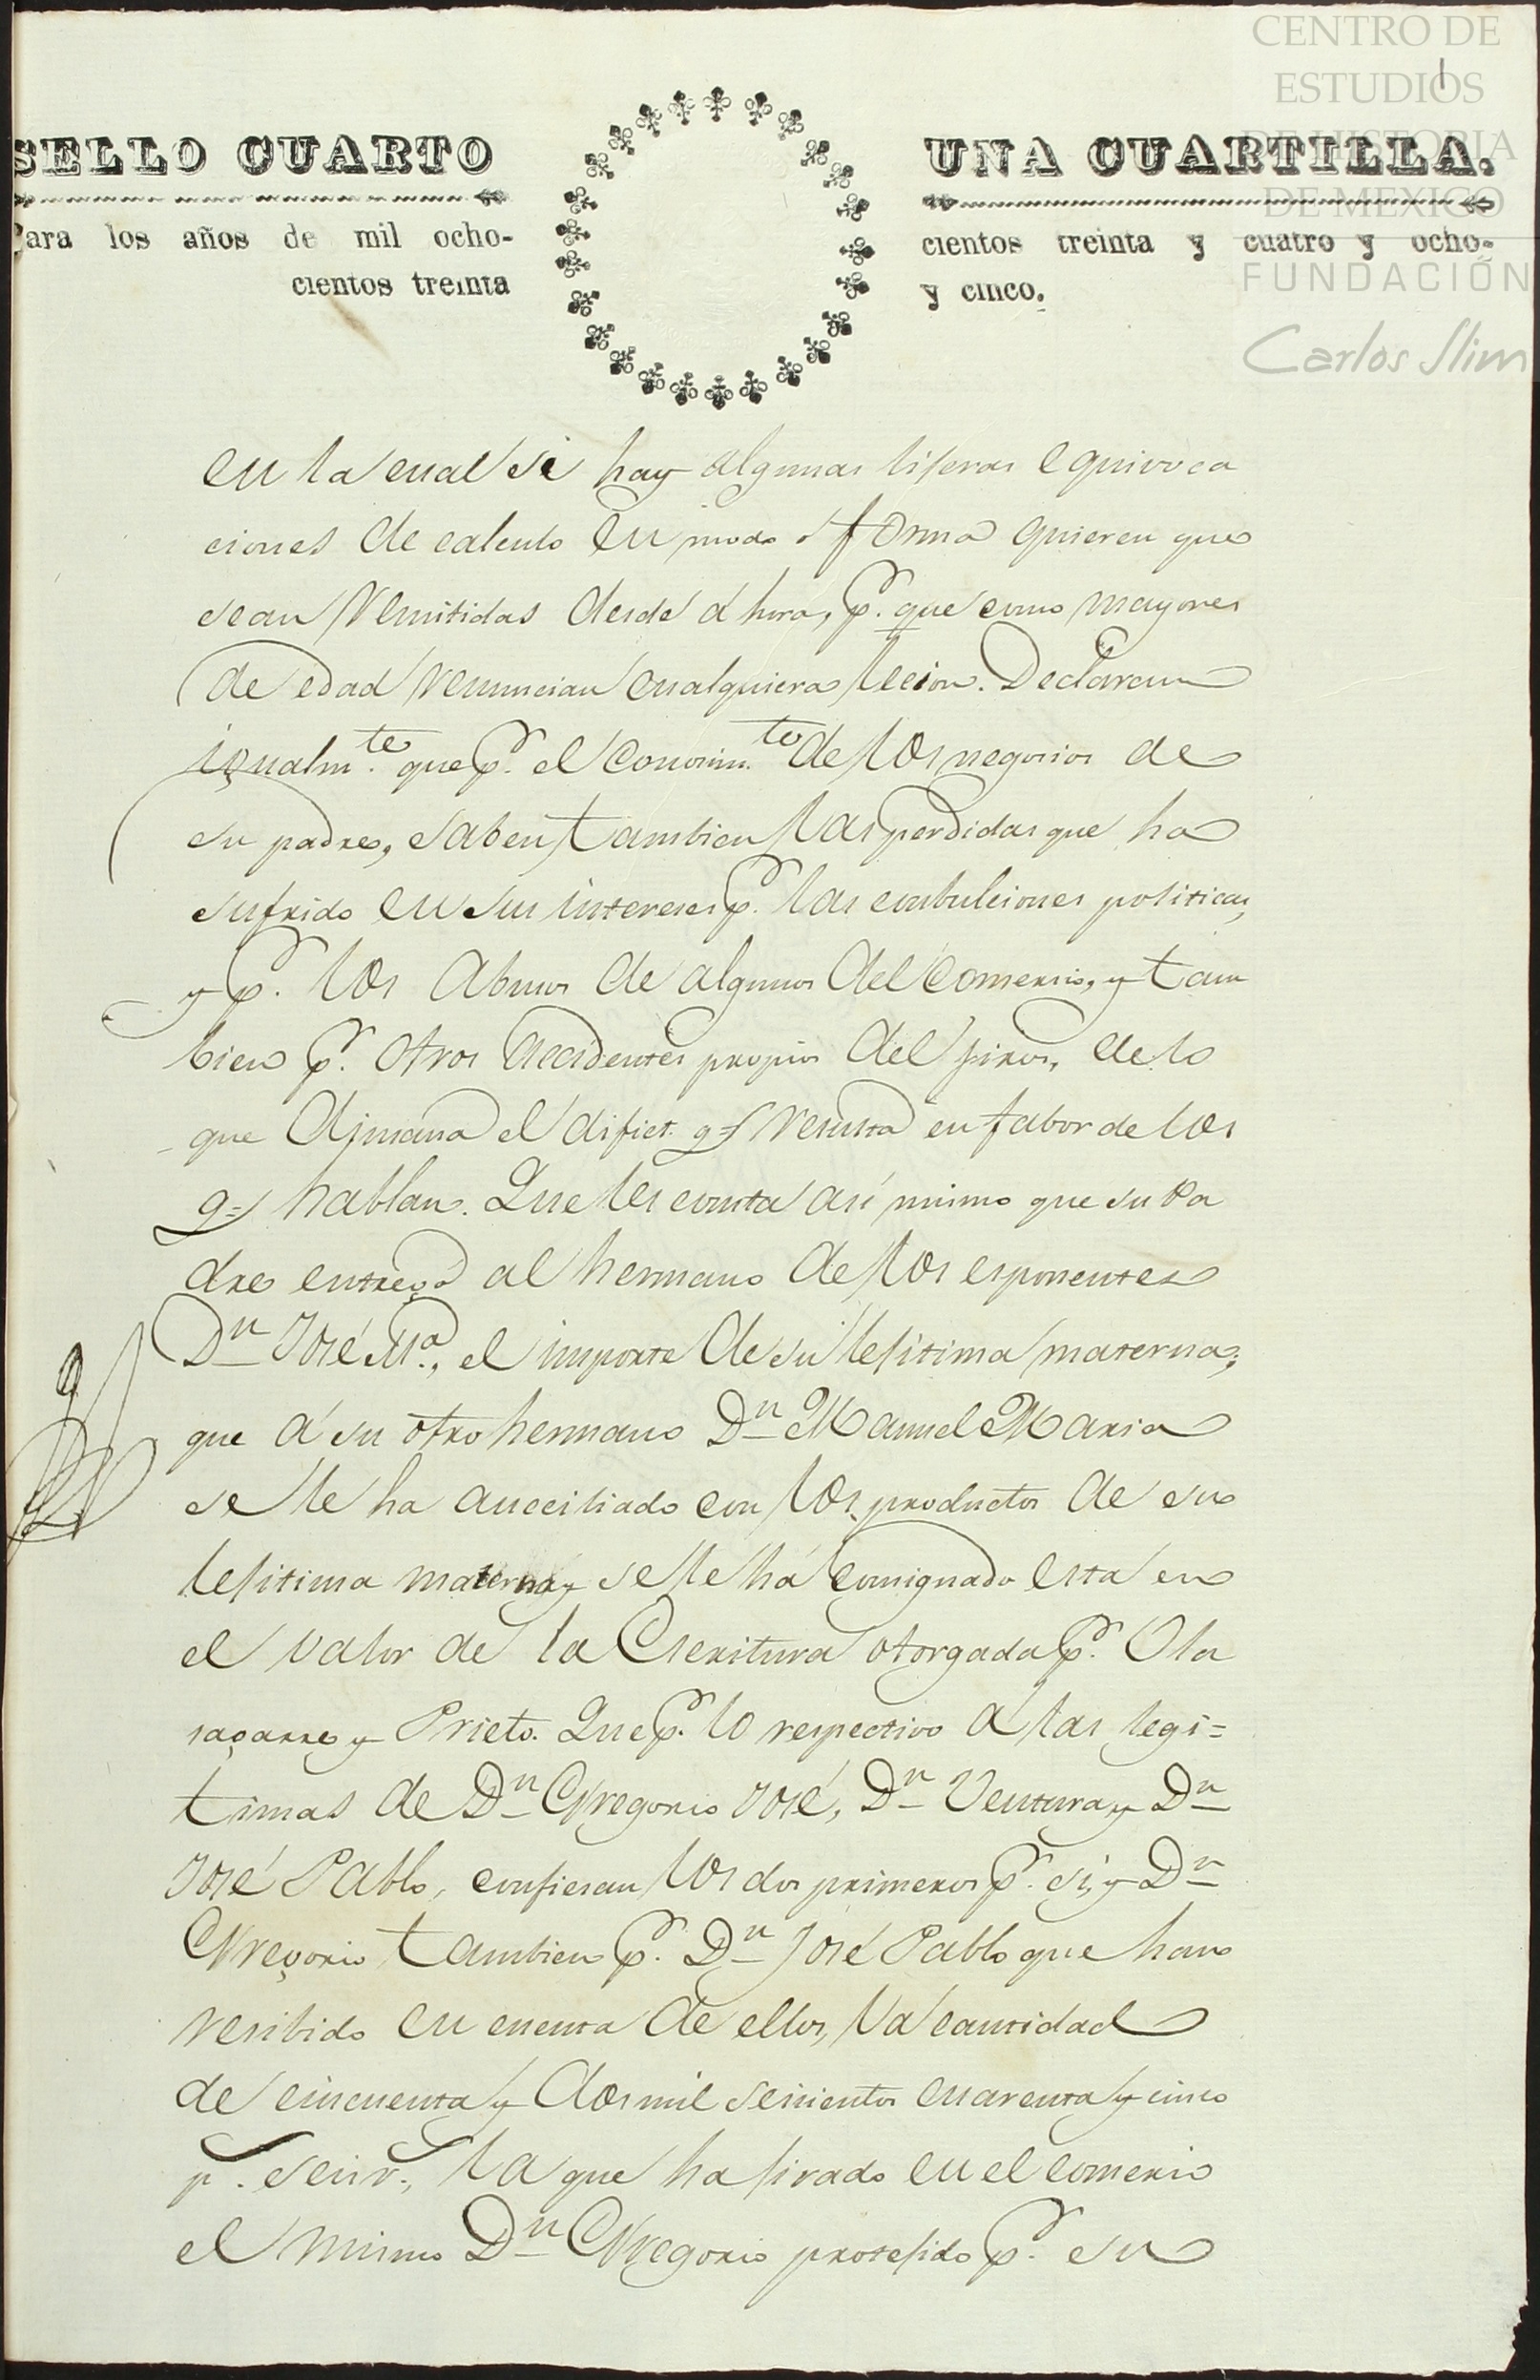 CENTRO DE
ESTUDIOS
DE HISTORIA
DE MEXICO
FUNDACIÓN
Carlos Slim
SELLO CUARTO UNA CUARTILLA.
Para los años de mil ocho- cientos treinta y cuatro y ocho-
cientos treinta y cinco.
en la cual si hay algunas lijeras equivoca
ciones de calculo en modo ó forma quieren que
sean remitidas desde áhora, p.r que como mayores
de edad renuncian cualquiera lecion. Declaran
igualm.te que p.r el conocim.to de los negocios de
su padre, saben tambien las perdidas que ha
sufrido en sus intereses p.r las conbulciones politicas,
y p.r los abusos de algunos del comercio, y tam
bien p.r otros accidentes propios del jiro, de lo
que dimana el difict. q.e resulta en fabor de los
q.e hablan. Que les consta así mismo que su Pa
dre entregó al hermano de los esponentes
Dn José Ma., el importe de su lejitima materna;
que á su otro hermano Dn Manuel Maria
se le ha aucciliado con los productos de su
lejitima materna y se le há consignado esta en
el valor de la Escritura otorgada p.r Ola
sagarre y Prieto. Que p.r lo respectivo á las legi=
timas de Dn Gregorio José, Dn Ventura y Dn
José Pablo, confiesan los dos primeros p.r sí, y Dn
Gregorio tambien p.r Dn José Pablo que han
resibido en cuenta de ellos, la cantidad
de cincuenta y dos mil seicientos cuarenta y cinco
p.s seis r.s, la que ha jirado en el comercio
el mismo Dn Gregorio protejido p.r su